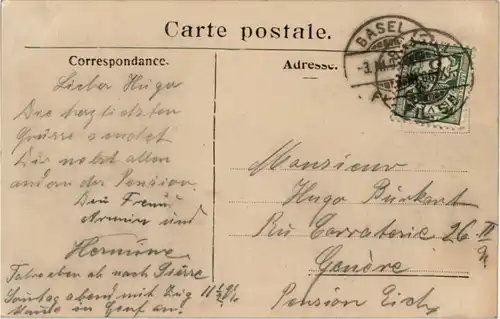 Carte postale.
Correspondance.
Adresse.
BASEL
Lieber Hugo
Die herzlichsten
Grüsse sendet
Dir nebst allen
andern der Pension
Dein Freund
Armin und
Hermine
Sonntag abend mit Zug 11
Monsieur
Hugo Burkart
Ru Corraterie 26 II
Genève
Pension